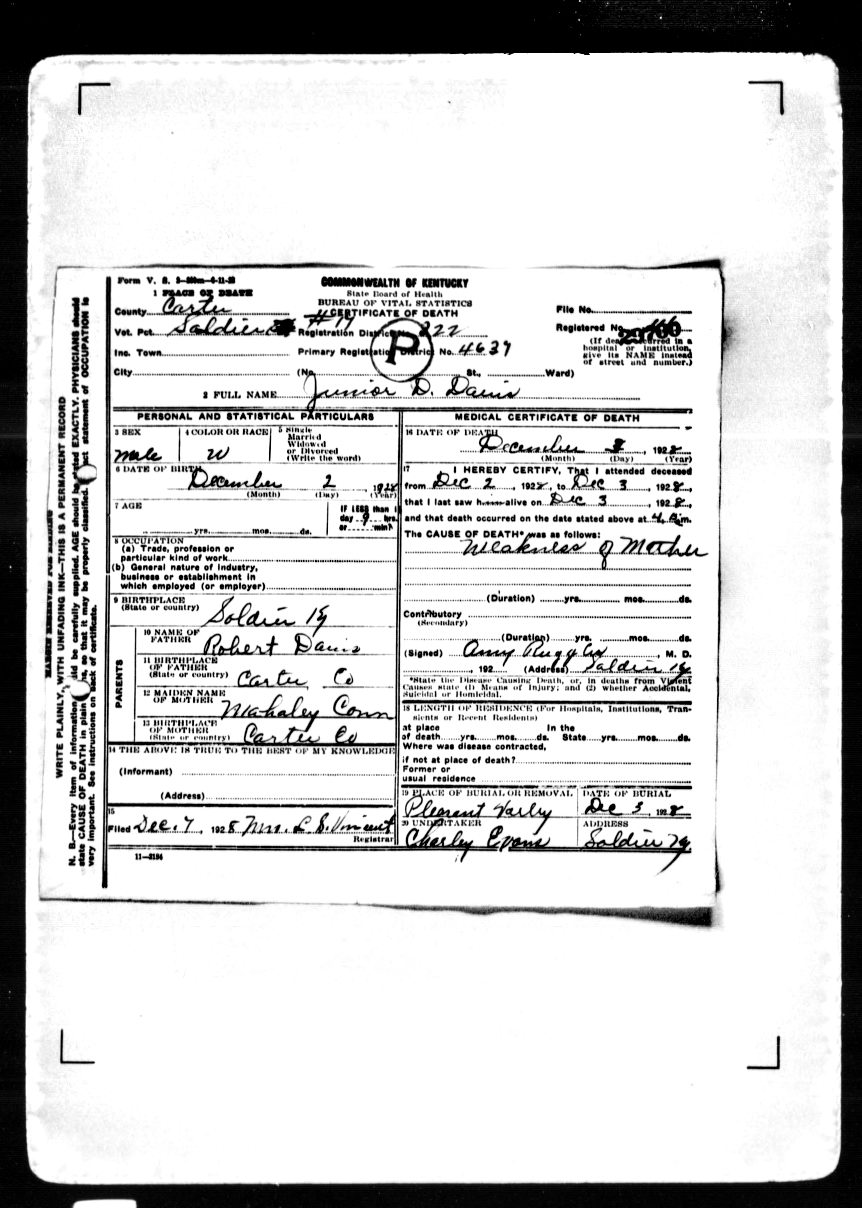 Form V. S.
1 PLACE OF DEATH
County Carter
Vot. Pct. Soldier #19
Ins. Town
City
COMMONWEALTH OF KENTUCKY
State Board of Health
BUREAU OF VITAL STATISTICS
CERTIFICATE OF DEATH
Registration District No. 222
Primary Registration District No. 4637
P
(No. St., Ward)
File No.
Registered No.
(If death occurred in a
hospital or institution,
give its NAME instead
of street and number.)
2 FULL NAME Junior D. Davis
PERSONAL AND STATISTICAL PARTICULARS
3 SEX
male
4 COLOR OR RACE
W
5 Single
Married
Widowed
or Divorced
(Write the word)
6 DATE OF BIRTH
December 2, 1928
(Month) (Day) (Year)
7 AGE
yrs. mos. ds.
IF LESS than 1
day 9 hrs.
or min?
8 OCCUPATION
(a) Trade, profession or
particular kind of work
(b) General nature of industry,
business or establishment in
which employed (or employer)
9 BIRTHPLACE
(State or country) Soldier Ky
PARENTS
10 NAME OF
FATHER Robert Davis
11 BIRTHPLACE
OF FATHER
(State or country) Carter Co
12 MAIDEN NAME
OF MOTHER Mahaley Conn
13 BIRTHPLACE
OF MOTHER
(State or country) Carter Co
14 THE ABOVE IS TRUE TO THE BEST OF MY KNOWLEDGE
(Informant)
(Address)
15
Filed Dec. 7, 1928 Mrs. L. S. Vincent
Registrar
11—3184
MEDICAL CERTIFICATE OF DEATH
16 DATE OF DEATH
December 3, 1928
(Month) (Day) (Year)
17 I HEREBY CERTIFY, That I attended deceased
from Dec 2, 1928, to Dec 3, 1928,
that I last saw h alive on Dec 3, 1928,
and that death occurred on the date stated above at 4 m.
The CAUSE OF DEATH* was as follows:
Weakness of Mother
(Duration) yrs. mos. ds.
Contributory
(Secondary)
(Duration) yrs. mos. ds.
(Signed) Amy, M. D.
, 192 (Address) Soldier Ky
*State the Disease Causing Death, or, in deaths from Violent
Causes state (1) Means of Injury; and (2) whether Accidental,
Suicidal or Homicidal.
18 LENGTH OF RESIDENCE (For Hospitals, Institutions, Tran-
sients or Recent Residents)
at place In the
of death yrs. mos. ds. State yrs. mos. ds.
Where was disease contracted,
if not at place of death?
Former or
usual residence
19 PLACE OF BURIAL OR REMOVAL
Pleasant Varley
DATE OF BURIAL
Dec 3, 1928
20 UNDERTAKER
Charley Evans
ADDRESS
Soldier Ky
MARGIN RESERVED FOR BINDING
WRITE PLAINLY, WITH UNFADING INK—THIS IS A PERMANENT RECORD
N. B.—Every item of information should be carefully supplied. AGE should be stated EXACTLY. PHYSICIANS should
state CAUSE OF DEATH in plain so that it may be properly classified. Exact statement of OCCUPATION is
very important. See instructions on back of certificate.